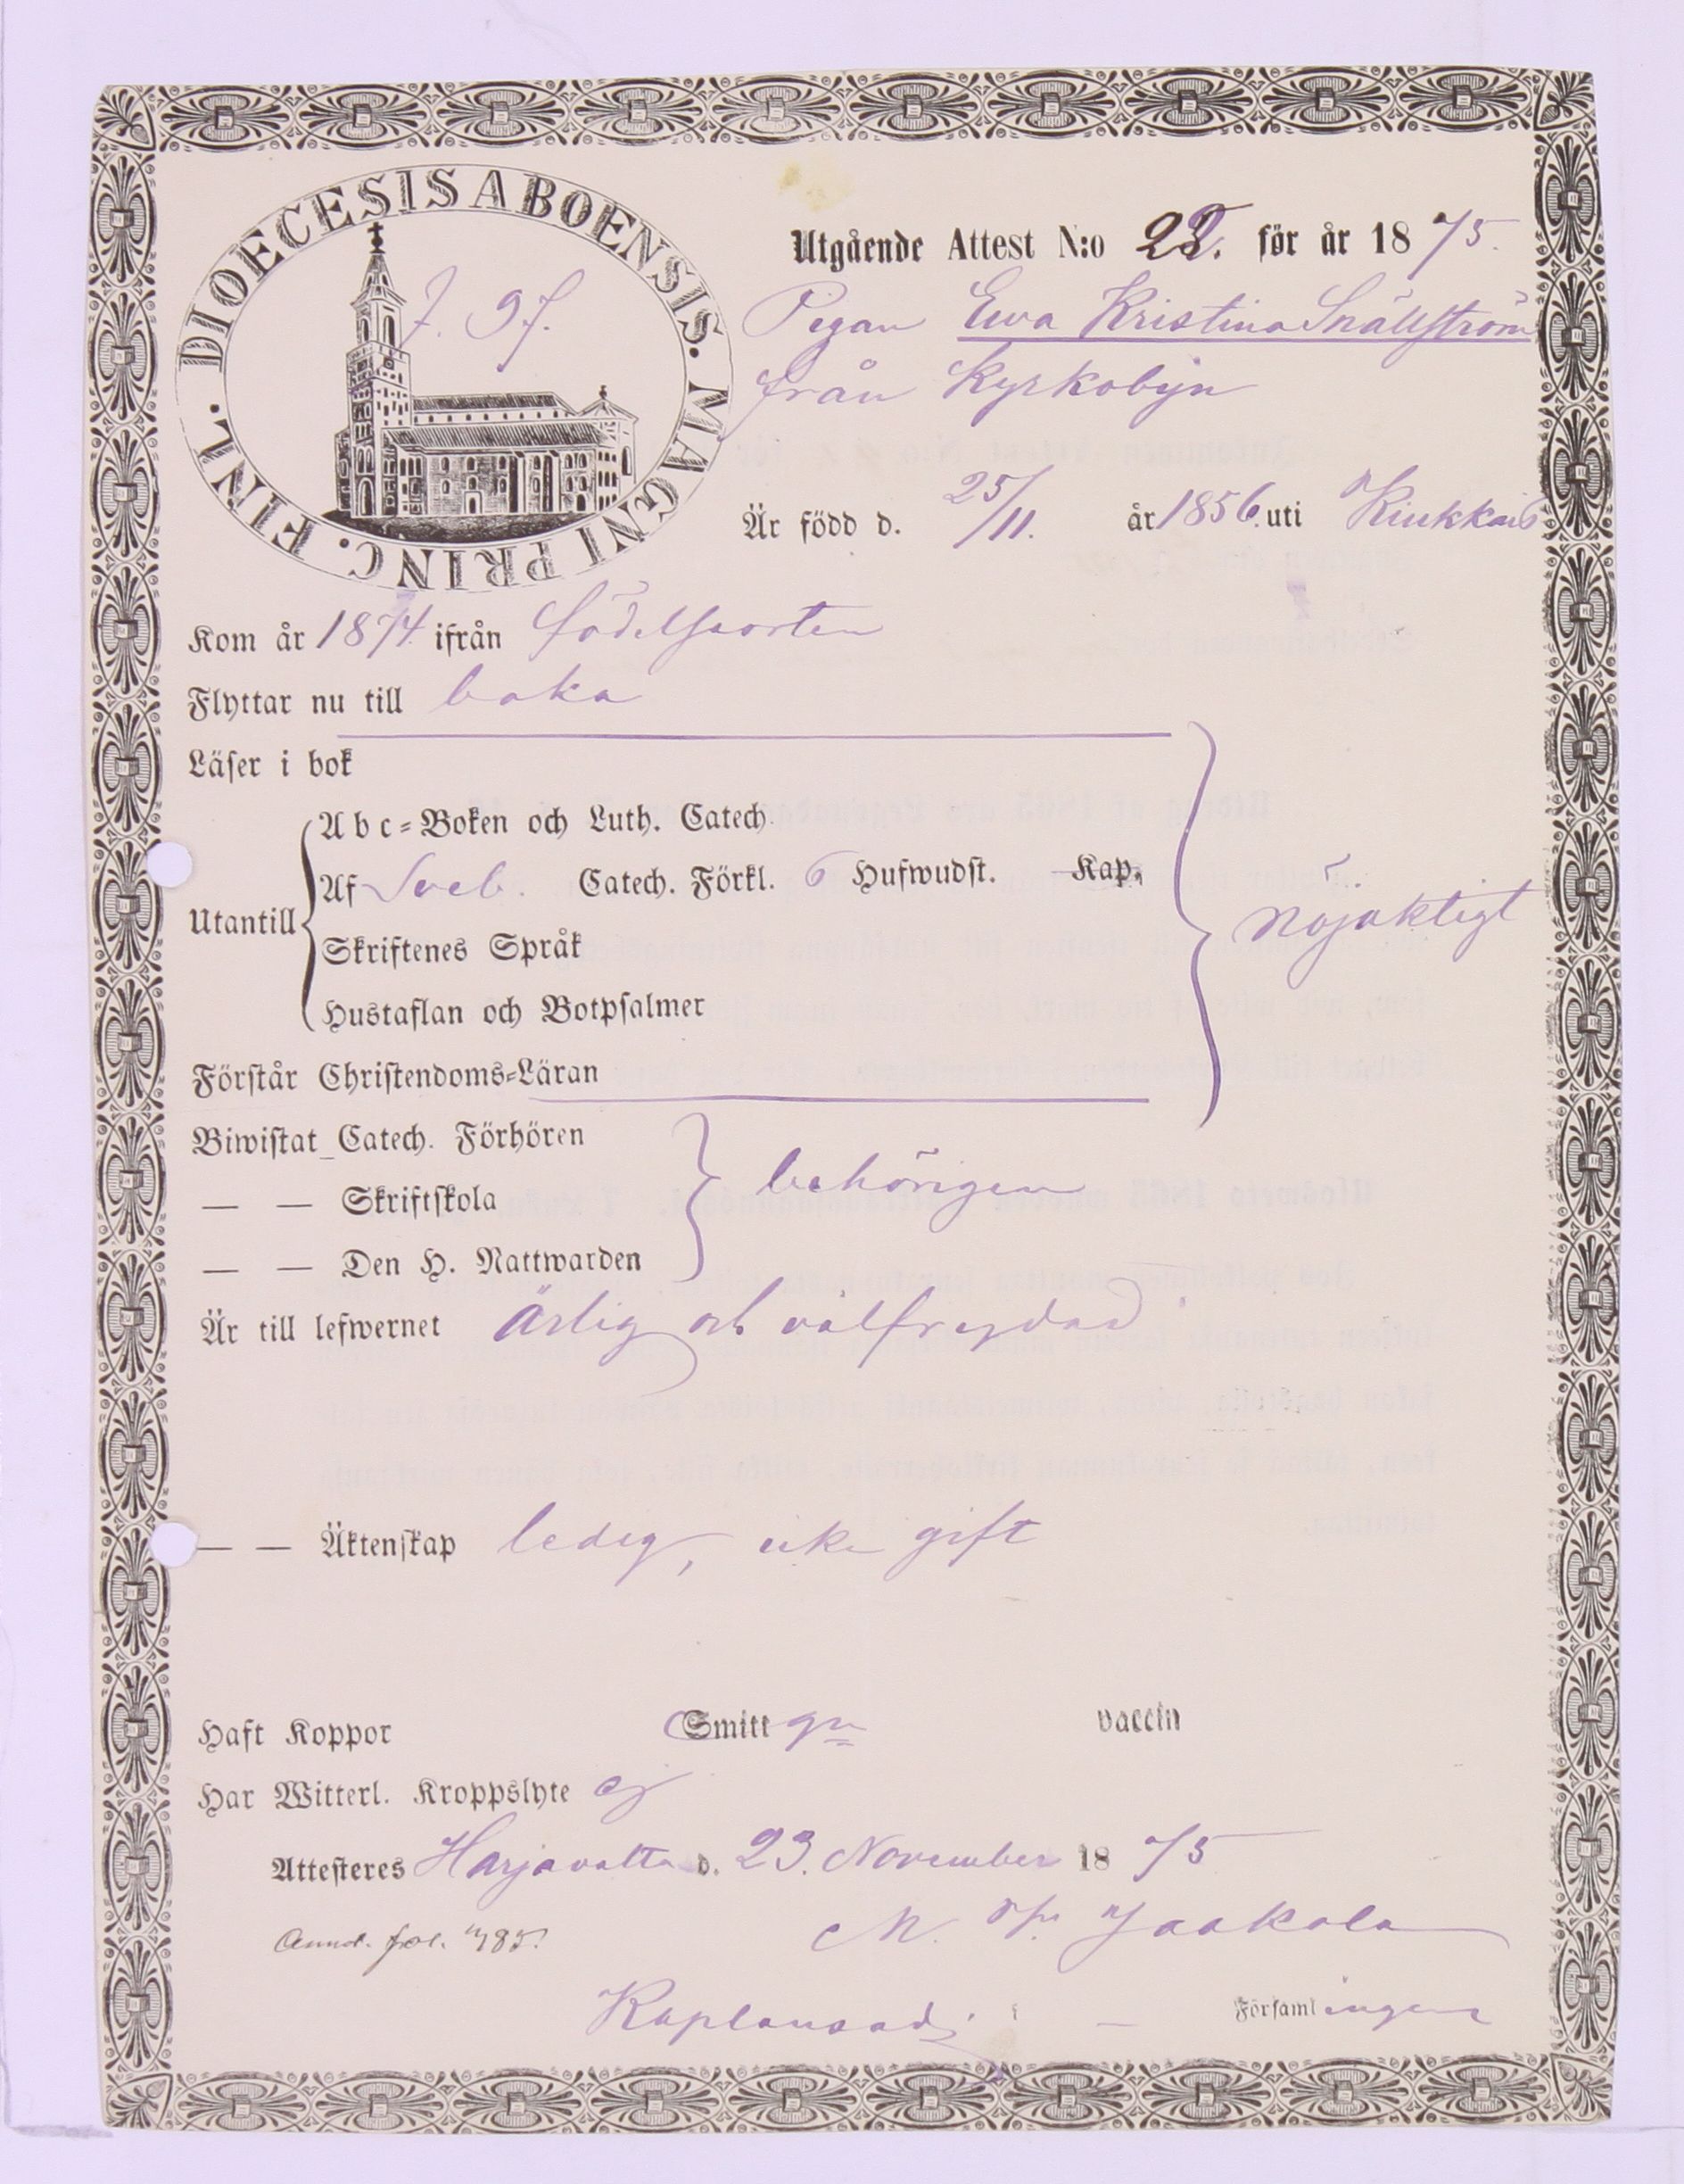 DIOECESIS ABOENSIS. MAGNI PRINC. FINL.
Utgående Attest N:o 22. för år 1875.
Pigan Ewa Kristina Snällström
från Kyrkobyn
Är född d. 25/11. år 1856. uti Kiukkais
Kom år 1874. ifrån födelseorten
Flyttar nu till baka
Läser i bok
Abc-Boken och Luth. Catech.
Utantill Af Sveb. Catech. Förkl. 6 Hufwudst. Kap. nöjaktigt
Skriftenes Språk
Hustaflan och Botpsalmer
Förstår Christendoms-Läran
Biwistat Catech. Förhören
— — Skriftskola behörigen
— — Den H. Nattwarden
Är till lefwernet ärlig och välfrejdad
— — Äktenskap ledig, icke gift
Haft Koppor Smitt vaccin
Har Witterl. Kroppslyte ej
Attesteres Harjavalta d. 23. November 1875
M. Jaakola
Annot. fol. 485.
Kaplansadj. i — Församlingen